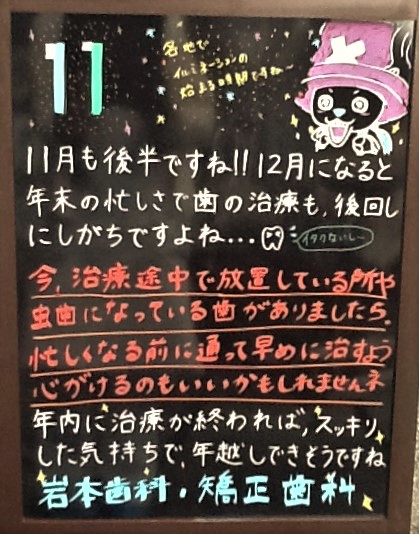 11
各地で
イルミネーションの
始まる時期ですね〜
11月も後半ですね!!12月になると
年末の忙しさで歯の治療も,後回し
にしがちですよね...
イタクないし〜
今,治療途中で放置している所や
虫歯になっている歯がありましたら,
忙しくなる前に通って早めに治すよう
心がけるのもいいかもしれませんネ
年内に治療が終われば,スッキリ
した気持ちで,年越しできそうですね
岩本歯科・矯正歯科